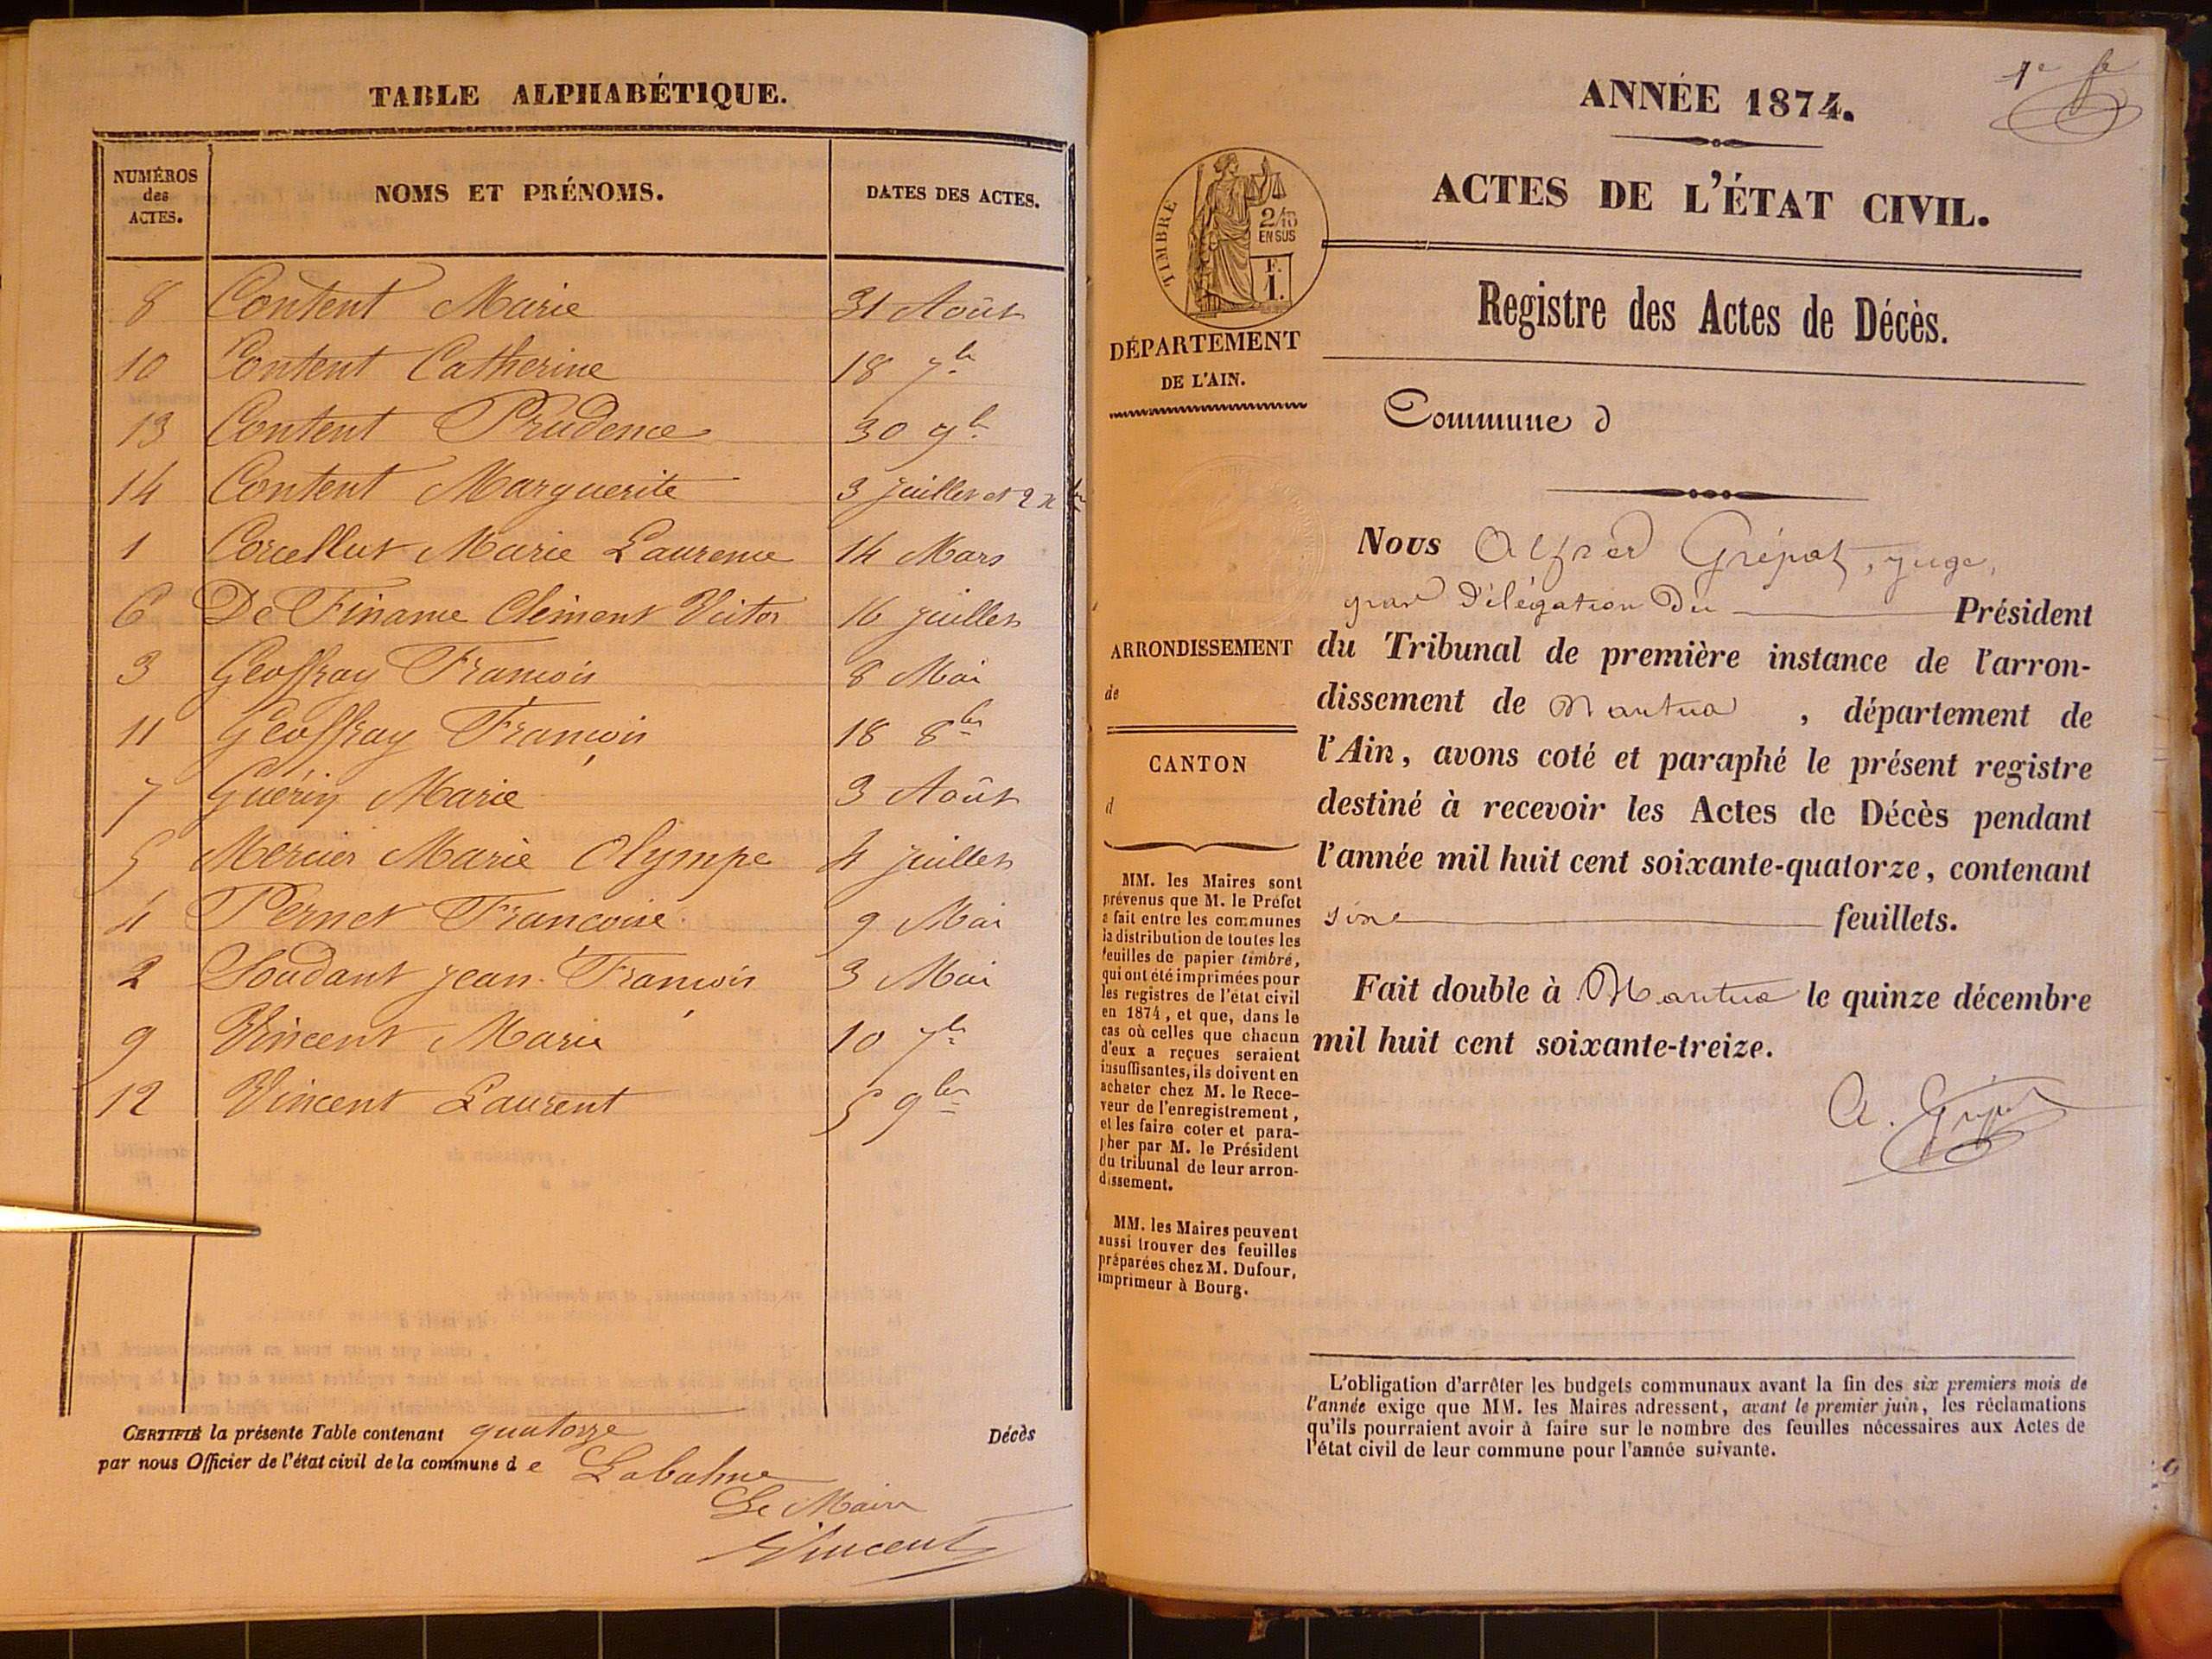 TABLE ALPHABÉTIQUE.
NUMÉROS des ACTES. NOMS ET PRÉNOMS. DATES DES ACTES.
8 Content Marie 31 Août
10 Content Catherine 18 7b.
13 Content Prudence 30 9b.
14 Content Marguerite 3 juillet et 2 xbre
1 Marie Laurence 14 Mars
6 De Finance Clément Victor 16 juillet
3 Geoffray François 8 Mai
11 Geoffray François 18 8bre
7 Guérin Marie 3 Août
5 Mercier Marie Olympe 4 juillet
4 Pernet Françoise 9 Mai
2 Soudant jean François 3 Mai
9 Vincent Marie 10 7b.
12 Vincent Laurent 5 9bre
CERTIFIÉ la présente Table contenant quatorze Décès
par nous Officier de l'état civil de la commune d e Labalme
Le Maire
Vincent
ANNÉE 1874.
ACTES DE L'ÉTAT CIVIL.
TIMBRE
2/10
EN SUS
F.
1.
Registre des Actes de Décès.
DÉPARTEMENT
DE L'AIN.
Commune d
Nous Alfred Grépat, juge,
par délégation du Président
ARRONDISSEMENT
de
du Tribunal de première instance de l'arron-
dissement de Nantua , département de
l'Ain, avons coté et paraphé le présent registre
destiné à recevoir les Actes de Décès pendant
l'année mil huit cent soixante-quatorze, contenant
six feuillets.
Fait double à Nantua le quinze décembre
mil huit cent soixante-treize.
CANTON
d
MM. les Maires sont
prévenus que M. le Préfet
a fait entre les communes
la distribution de toutes les
feuilles de papier timbré,
qui ont été imprimées pour
les registres de l'état civil
en 1874, et que, dans le
cas où celles que chacun
d'eux a reçues seraient
insuffisantes, ils doivent en
acheter chez M. le Rece-
veur de l'enregistrement,
et les faire coter et para-
pher par M. le Président
du tribunal de leur arron-
dissement.
MM. les Maires peuvent
aussi trouver des feuilles
préparées chez M. Dufour,
imprimeur à Bourg.
L'obligation d'arrêter les budgets communaux avant la fin des six premiers mois de
l'année exige que MM. les Maires adressent, avant le premier juin, les réclamations
qu'ils pourraient avoir à faire sur le nombre des feuilles nécessaires aux Actes de
l'état civil de leur commune pour l'année suivante.